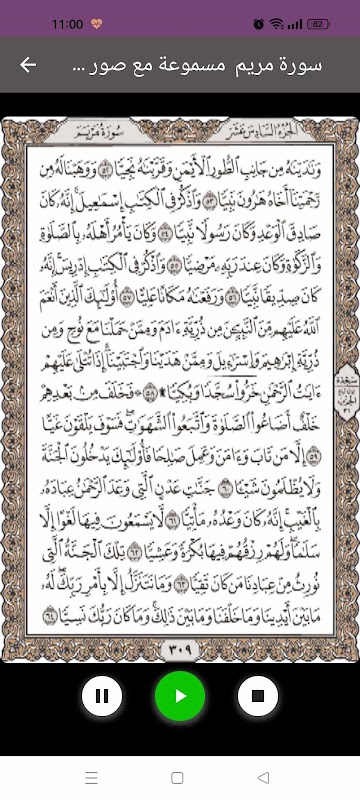 11:00
82
سورة مريم مسموعة مع صور ...
الجزء السادس عشر
سورة مريم
وَنَٰدَيْنَٰهُ مِن جَانِبِ ٱلطُّورِ ٱلْأَيْمَنِ وَقَرَّبْنَٰهُ نَجِيًّا ٥٢ وَوَهَبْنَا لَهُۥ مِن
رَّحْمَتِنَآ أَخَاهُ هَٰرُونَ نَبِيًّا ٥٣ وَٱذْكُرْ فِى ٱلْكِتَٰبِ إِسْمَٰعِيلَ إِنَّهُۥ كَانَ
صَادِقَ ٱلْوَعْدِ وَكَانَ رَسُولًا نَّبِيًّا ٥٤ وَكَانَ يَأْمُرُ أَهْلَهُۥ بِٱلصَّلَوٰةِ
وَٱلزَّكَوٰةِ وَكَانَ عِندَ رَبِّهِۦ مَرْضِيًّا ٥٥ وَٱذْكُرْ فِى ٱلْكِتَٰبِ إِدْرِيسَ إِنَّهُۥ
كَانَ صِدِّيقًا نَّبِيًّا ٥٦ وَرَفَعْنَٰهُ مَكَانًا عَلِيًّا ٥٧ أُو۟لَٰٓئِكَ ٱلَّذِينَ أَنْعَمَ
ٱللَّهُ عَلَيْهِم مِّنَ ٱلنَّبِيِّۦنَ مِن ذُرِّيَّةِ ءَادَمَ وَمِمَّنْ حَمَلْنَا مَعَ نُوحٍ وَمِن
ذُرِّيَّةِ إِبْرَٰهِيمَ وَإِسْرَٰٓءِيلَ وَمِمَّنْ هَدَيْنَا وَٱجْتَبَيْنَآ إِذَا تُتْلَىٰ عَلَيْهِمْ
ءَايَٰتُ ٱلرَّحْمَٰنِ خَرُّوا۟ سُجَّدًا وَبُكِيًّا ۩ ٥٨ ۞ فَخَلَفَ مِنۢ بَعْدِهِمْ
خَلْفٌ أَضَاعُوا۟ ٱلصَّلَوٰةَ وَٱتَّبَعُوا۟ ٱلشَّهَوَٰتِ فَسَوْفَ يَلْقَوْنَ غَيًّا
٥٩ إِلَّا مَن تَابَ وَءَامَنَ وَعَمِلَ صَٰلِحًا فَأُو۟لَٰٓئِكَ يَدْخُلُونَ ٱلْجَنَّةَ
وَلَا يُظْلَمُونَ شَيْـًٔا ٦٠ جَنَّٰتِ عَدْنٍ ٱلَّتِى وَعَدَ ٱلرَّحْمَٰنُ عِبَادَهُۥ
بِٱلْغَيْبِ إِنَّهُۥ كَانَ وَعْدُهُۥ مَأْتِيًّا ٦١ لَّا يَسْمَعُونَ فِيهَا لَغْوًا إِلَّا
سَلَٰمًا وَلَهُمْ رِزْقُهُمْ فِيهَا بُكْرَةً وَعَشِيًّا ٦٢ تِلْكَ ٱلْجَنَّةُ ٱلَّتِى
نُورِثُ مِنْ عِبَادِنَا مَن كَانَ تَقِيًّا ٦٣ وَمَا نَتَنَزَّلُ إِلَّا بِأَمْرِ رَبِّكَ لَهُۥ
مَا بَيْنَ أَيْدِينَا وَمَا خَلْفَنَا وَمَا بَيْنَ ذَٰلِكَ وَمَا كَانَ رَبُّكَ نَسِيًّا ٦٤
سجدة
٣٠٩